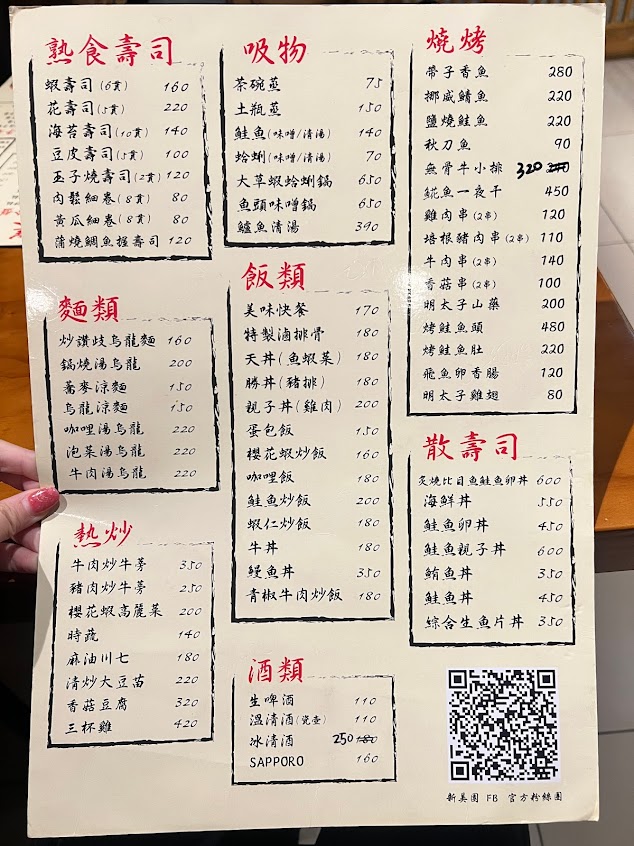 熟食壽司
蝦壽司(6貫) 160
花壽司(5貫) 220
海苔壽司(10貫) 140
豆皮壽司(5貫) 100
玉子燒壽司(2貫) 120
肉鬆細卷(8貫) 80
黃瓜細卷(8貫) 80
蒲燒鯛魚握壽司 120
麵類
炒讚歧烏龍麵 160
鍋燒湯烏龍 200
蕎麥涼麵 150
烏龍涼麵 150
咖哩湯烏龍 220
泡菜湯烏龍 220
牛肉湯烏龍 220
熱炒
牛肉炒牛蒡 350
豬肉炒牛蒡 250
櫻花蝦高麗菜 200
時蔬 140
麻油川七 180
清炒大豆苗 220
香菇豆腐 320
三杯雞 420
吸物
茶碗蒸 75
土瓶蒸 150
鮭魚(味噌/清湯) 140
蛤蜊(味噌/清湯) 70
大草蝦蛤蜊鍋 650
魚頭味噌鍋 650
鱸魚清湯 390
飯類
美味快餐 170
特製滷排骨 180
天丼(魚蝦菜) 180
勝丼(豬排) 180
親子丼(雞肉) 200
蛋包飯 150
櫻花蝦炒飯 160
咖哩飯 180
鮭魚炒飯 200
蝦仁炒飯 180
牛丼 180
鰻魚丼 350
青椒牛肉炒飯 180
酒類
生啤酒 110
溫清酒(瓷壺) 110
冰清酒 250 180
SAPPORO 160
燒烤
帶子香魚 280
挪威鯖魚 220
鹽燒鮭魚 220
秋刀魚 90
無骨牛小排 320
鯡魚一夜干 450
雞肉串(2串) 120
培根豬肉串(2串) 110
牛肉串(2串) 140
香菇串(2串) 100
明太子山藥 200
烤鮭魚頭 480
烤鮭魚肚 220
飛魚卵香腸 120
明太子雞翅 80
散壽司
炙燒比目魚鮭魚卵丼 600
海鮮丼 550
鮭魚卵丼 450
鮭魚親子丼 600
鮪魚丼 350
鮭魚丼 450
綜合生魚片丼 350
新美園 FB 官方粉絲團